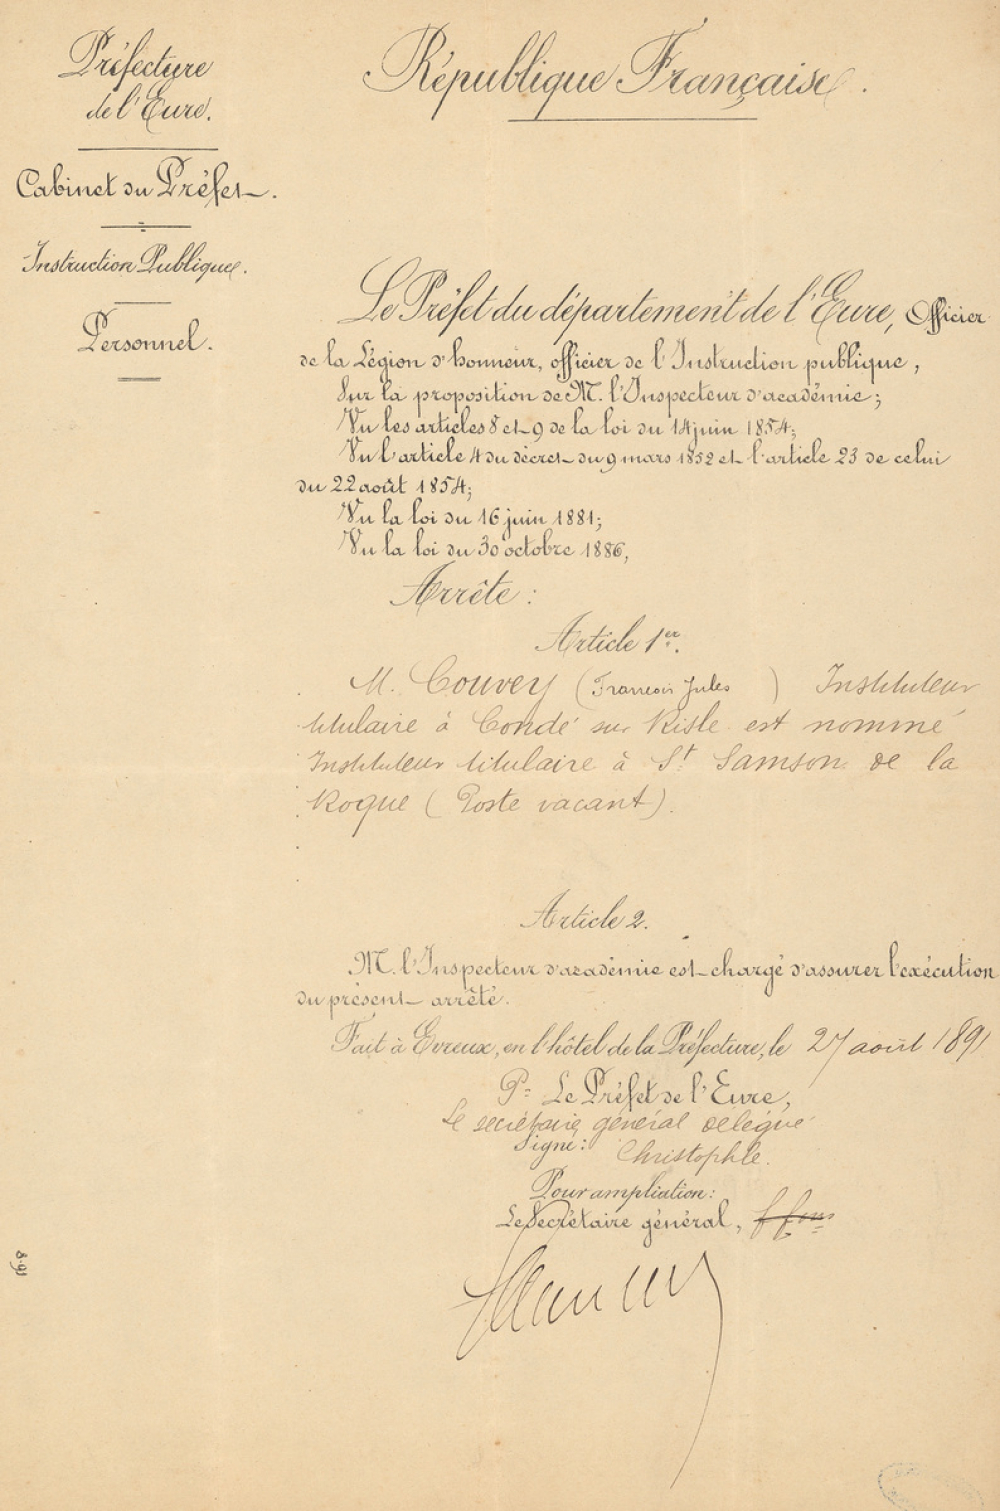 Préfecture
de l'Eure.
Cabinet du Préfet.
Instruction Publique.
Personnel.
République Française.
Le Préfet du département de l'Eure, Officier
de la Légion d'honneur, officier de l'Instruction publique,
Sur la proposition de M. l'Inspecteur d'académie;
Vu les articles 8 et 9 de la loi du 14 juin 1854;
Vu l'article 4 du décret du 9 mars 1852 et l'article 23 de celui
du 22 août 1854;
Vu la loi du 16 juin 1881;
Vu la loi du 30 octobre 1886,
Arrête :
Article 1er.
M. Couvey (Francois Jules ) Instituteur
titulaire à Condé sur Risle est nommé
Instituteur titulaire à St Samson de la
Roque (Poste vacant).
Article 2.
M. l'Inspecteur d'académie est chargé d'assurer l'exécution
du présent arrêté.
Fait à Evreux, en l'hôtel de la Préfecture, le 27 août 1891
Pr Le Préfet de l'Eure,
Le secrétaire général délégué
Signé : Christophle.
Pour ampliation :
Le Secrétaire général,
8.91